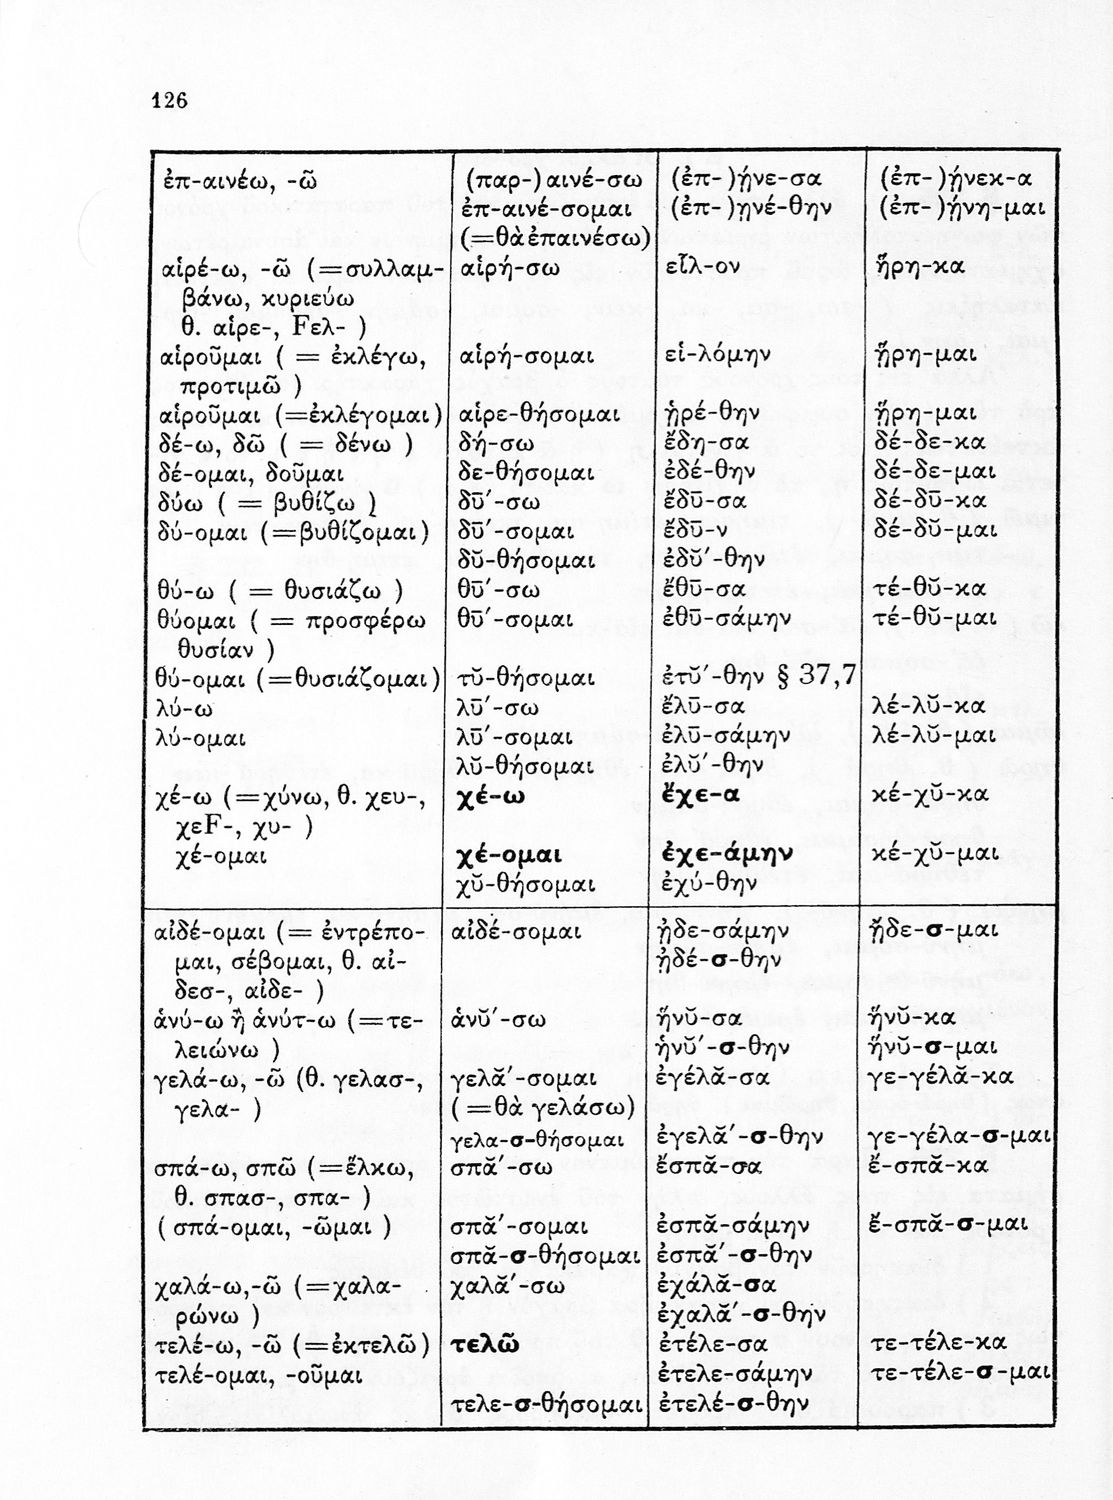 126
ἐπ-αινέω, -ῶ (παρ-) αινέ-σω (ἐπ- )ῄνε-σα (ἐπ- )ῄνεκ-α
ἐπ-αινέ-σομαι (ἐπ- )ῃνέ-θην (ἐπ- )ῄνη-μαι
(=θὰ ἐπαινέσω)
αἱρέ-ω, -ῶ (=συλλαμ- αἱρή-σω εἷλ-ον ᾕρη-κα
βάνω, κυριεύω
θ. αἱρε-, Fελ- )
αἱροῦμαι ( = ἐκλέγω, αἱρή-σομαι εἱ-λόμην ᾕρη-μαι
προτιμῶ )
αἱροῦμαι (=ἐκλέγομαι) αἱρε-θήσομαι ᾑρέ-θην ᾕρη-μαι
δέ-ω, δῶ ( = δένω ) δή-σω ἔδη-σα δέ-δε-κα
δέ-ομαι, δοῦμαι δε-θήσομαι ἐδέ-θην δέ-δε-μαι
δύω ( = βυθίζω ) δῡ́-σω ἔδῡ-σα δέ-δῡ-κα
δύ-ομαι (=βυθίζομαι) δῡ́-σομαι ἔδῡ-ν δέ-δῠ-μαι
δῠ-θήσομαι ἐδῠ́-θην
θύ-ω ( = θυσιάζω ) θῡ́-σω ἔθῡ-σα τέ-θῠ-κα
θύομαι ( = προσφέρω θῡ́-σομαι ἐθῡ-σάμην τέ-θῠ-μαι
θυσίαν )
θύ-ομαι (=θυσιάζομαι) τῠ-θήσομαι ἐτῠ́-θην § 37,7
λύ-ω λῡ́-σω ἔλῡ-σα λέ-λῠ-κα
λύ-ομαι λῡ́-σομαι ἐλῡ-σάμην λέ-λῠ-μαι
λῠ-θήσομαι ἐλῠ́-θην
χέ-ω (=χύνω, θ. χευ-, χέ-ω ἔχε-α κέ-χῠ-κα
χεF-, χυ- )
χέ-ομαι χέ-ομαι ἐχε-άμην κέ-χῠ-μαι
χῠ-θήσομαι ἐχύ-θην
αἰδέ-ομαι (= ἐντρέπο- αἰδέ-σομαι ᾐδε-σάμην ᾔδε-σ-μαι
μαι, σέβομαι, θ. αἰ- ᾐδέ-σ-θην
δεσ-, αἰδε- )
ἀνύ-ω ἢ ἀνύτ-ω (=τε- ἀνῠ́-σω ἤνῠ-σα ἤνῠ-κα
λειώνω ) ἠνῠ́-σ-θην ἤνῠ-σ-μαι
γελά-ω, -ῶ (θ. γελασ-, γελᾰ́-σομαι ἐγέλᾰ-σα γε-γέλᾰ-κα
γελα- ) ( =θὰ γελάσω)
γελα-σ-θήσομαι ἐγελᾰ́-σ-θην γε-γέλα-σ-μαι
σπά-ω, σπῶ (=ἕλκω, σπᾰ́-σω ἔσπᾰ-σα ἔ-σπᾰ-κα
θ. σπασ-, σπα- )
( σπά-ομαι, -ῶμαι ) σπᾰ́-σομαι ἐσπᾰ-σάμην ἔ-σπᾰ-σ-μαι
σπᾰ-σ-θήσομαι ἐσπᾰ́-σ-θην
χαλά-ω,-ῶ (=χαλα- χαλᾰ́-σω ἐχάλᾰ-σα
ρώνω ) ἐχαλᾰ́-σ-θην
τελέ-ω, -ῶ (=ἐκτελῶ) τελῶ ἐτέλε-σα τε-τέλε-κα
τελέ-ομαι, -οῦμαι ἐτελε-σάμην τε-τέλε-σ-μαι
τελε-σ-θήσομαι ἐτελέ-σ-θην